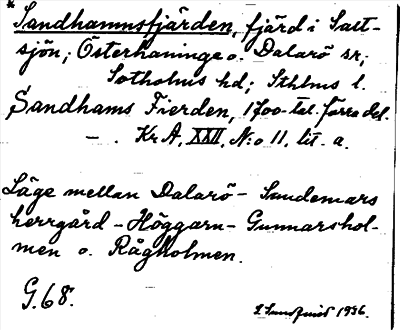 * Sandhamnsfjärden, fjärd i Salt-
sjön; Österhaninge o. Dalarö sr,
Sotholms hd; Sthlms l.
Sandhams Fierden, 1700-tal. förra del.
— . Kr A, XXII, N:o 11, lit. a.
Läge mellan Dalarö - Sandemars
herrgård - Höggarn - Gunnarshol-
men o. Rågholmen.
G. 68.
Sundquist 1936.